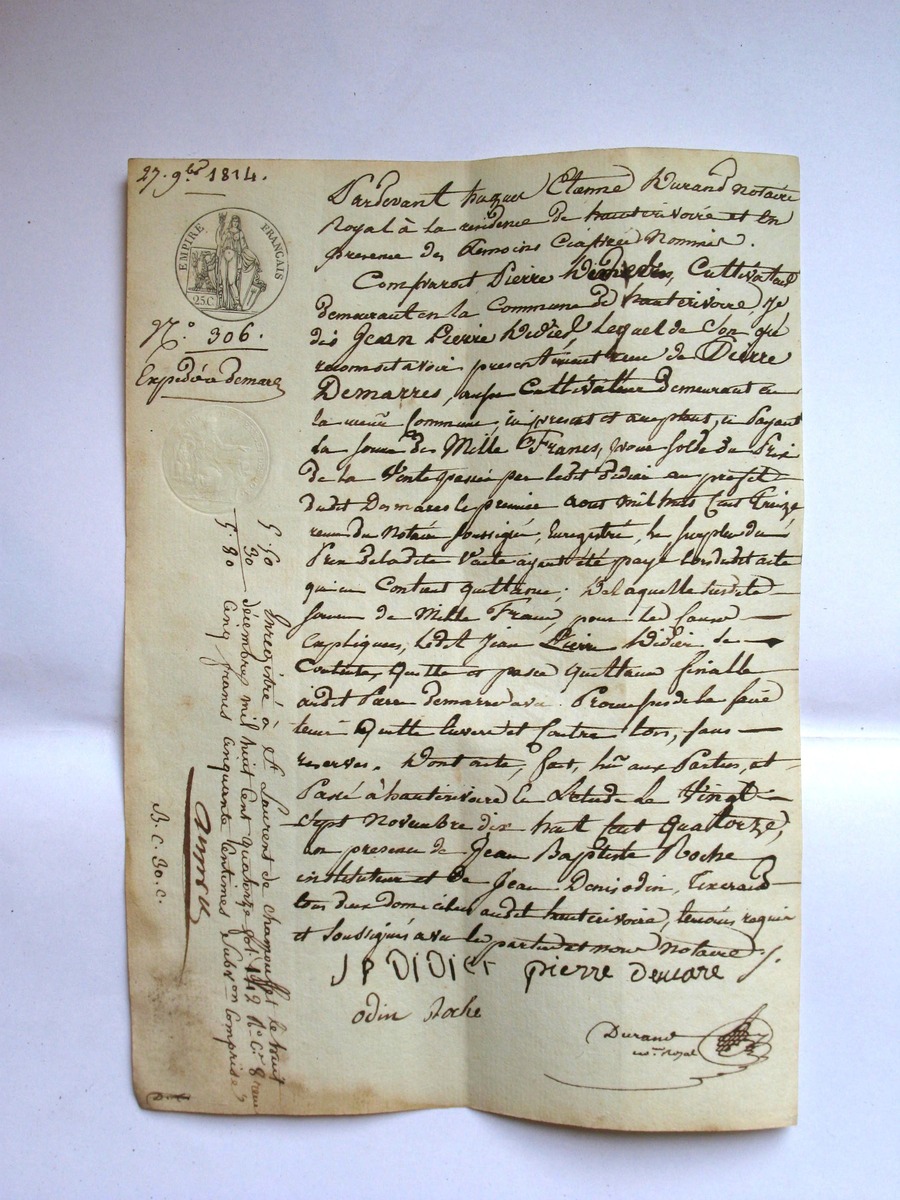 27. 9bre 1814.
EMPIRE FRANÇAIS
25.C
N.° 306.
Expédié à demare
Pardevant Jacques Etienne Durand notaire
Royal à la residence de hauterivoire et en
presence des temoins ciaprès nommés.
Comparoit Pierre Cultivateur
demeurant en la Commune de hauterivoire, Je
dis Jean Pierre Didier, Lequel de Con gré
reconoit avoir presentement reçu de Pierre
Demarres, aussi Cultivateur demeurant en
la même Commune, ici present et acceptant, et Payant
La somme de Mille Francs, pour solde du Prix
de la Vente passée par ledit didier en profit
dudit Demares le premier aout mil huit Cent treize
reçu du Notaire soussigné, Enregistré, Le surplus du
Prix de ladite Vente ayant été payé lors dudit acte
qui en Contient quittance; De laquelle susdite
somme de Mille Francs, pour les causes
Expliquées, ledit Jean Pierre Didier se
Contente, quitte et passe quittance finalle
audit Pierre demarre avec Promesse de le faire
tenir quitte Envers et Contre tous, sans
reserves. Dont acte, fait, lu aux Parties, et
Passé à hauterivoire En Letude Le Vingt
Sept Novembre dix huit Cent Quatorze,
en presence de Jean Baptiste Roche
instituteur et de Jean Denis odin, tixerand
tous deux domiciliés audit hauterivoire, temoins requis
et soussignés avec les parties et nous Notaire
JP DIDIER pierre demare
odin Roche
Durand
no.re Royal
5. 50
30
5. 80
Enregistré à St. Laurent de chamousset le huit
décembre mil huit cent quatorze fol. 142 R.° C.e 8 reçu
cinq francs cinquante centimes subv.on comprise
B. C. 30. C.